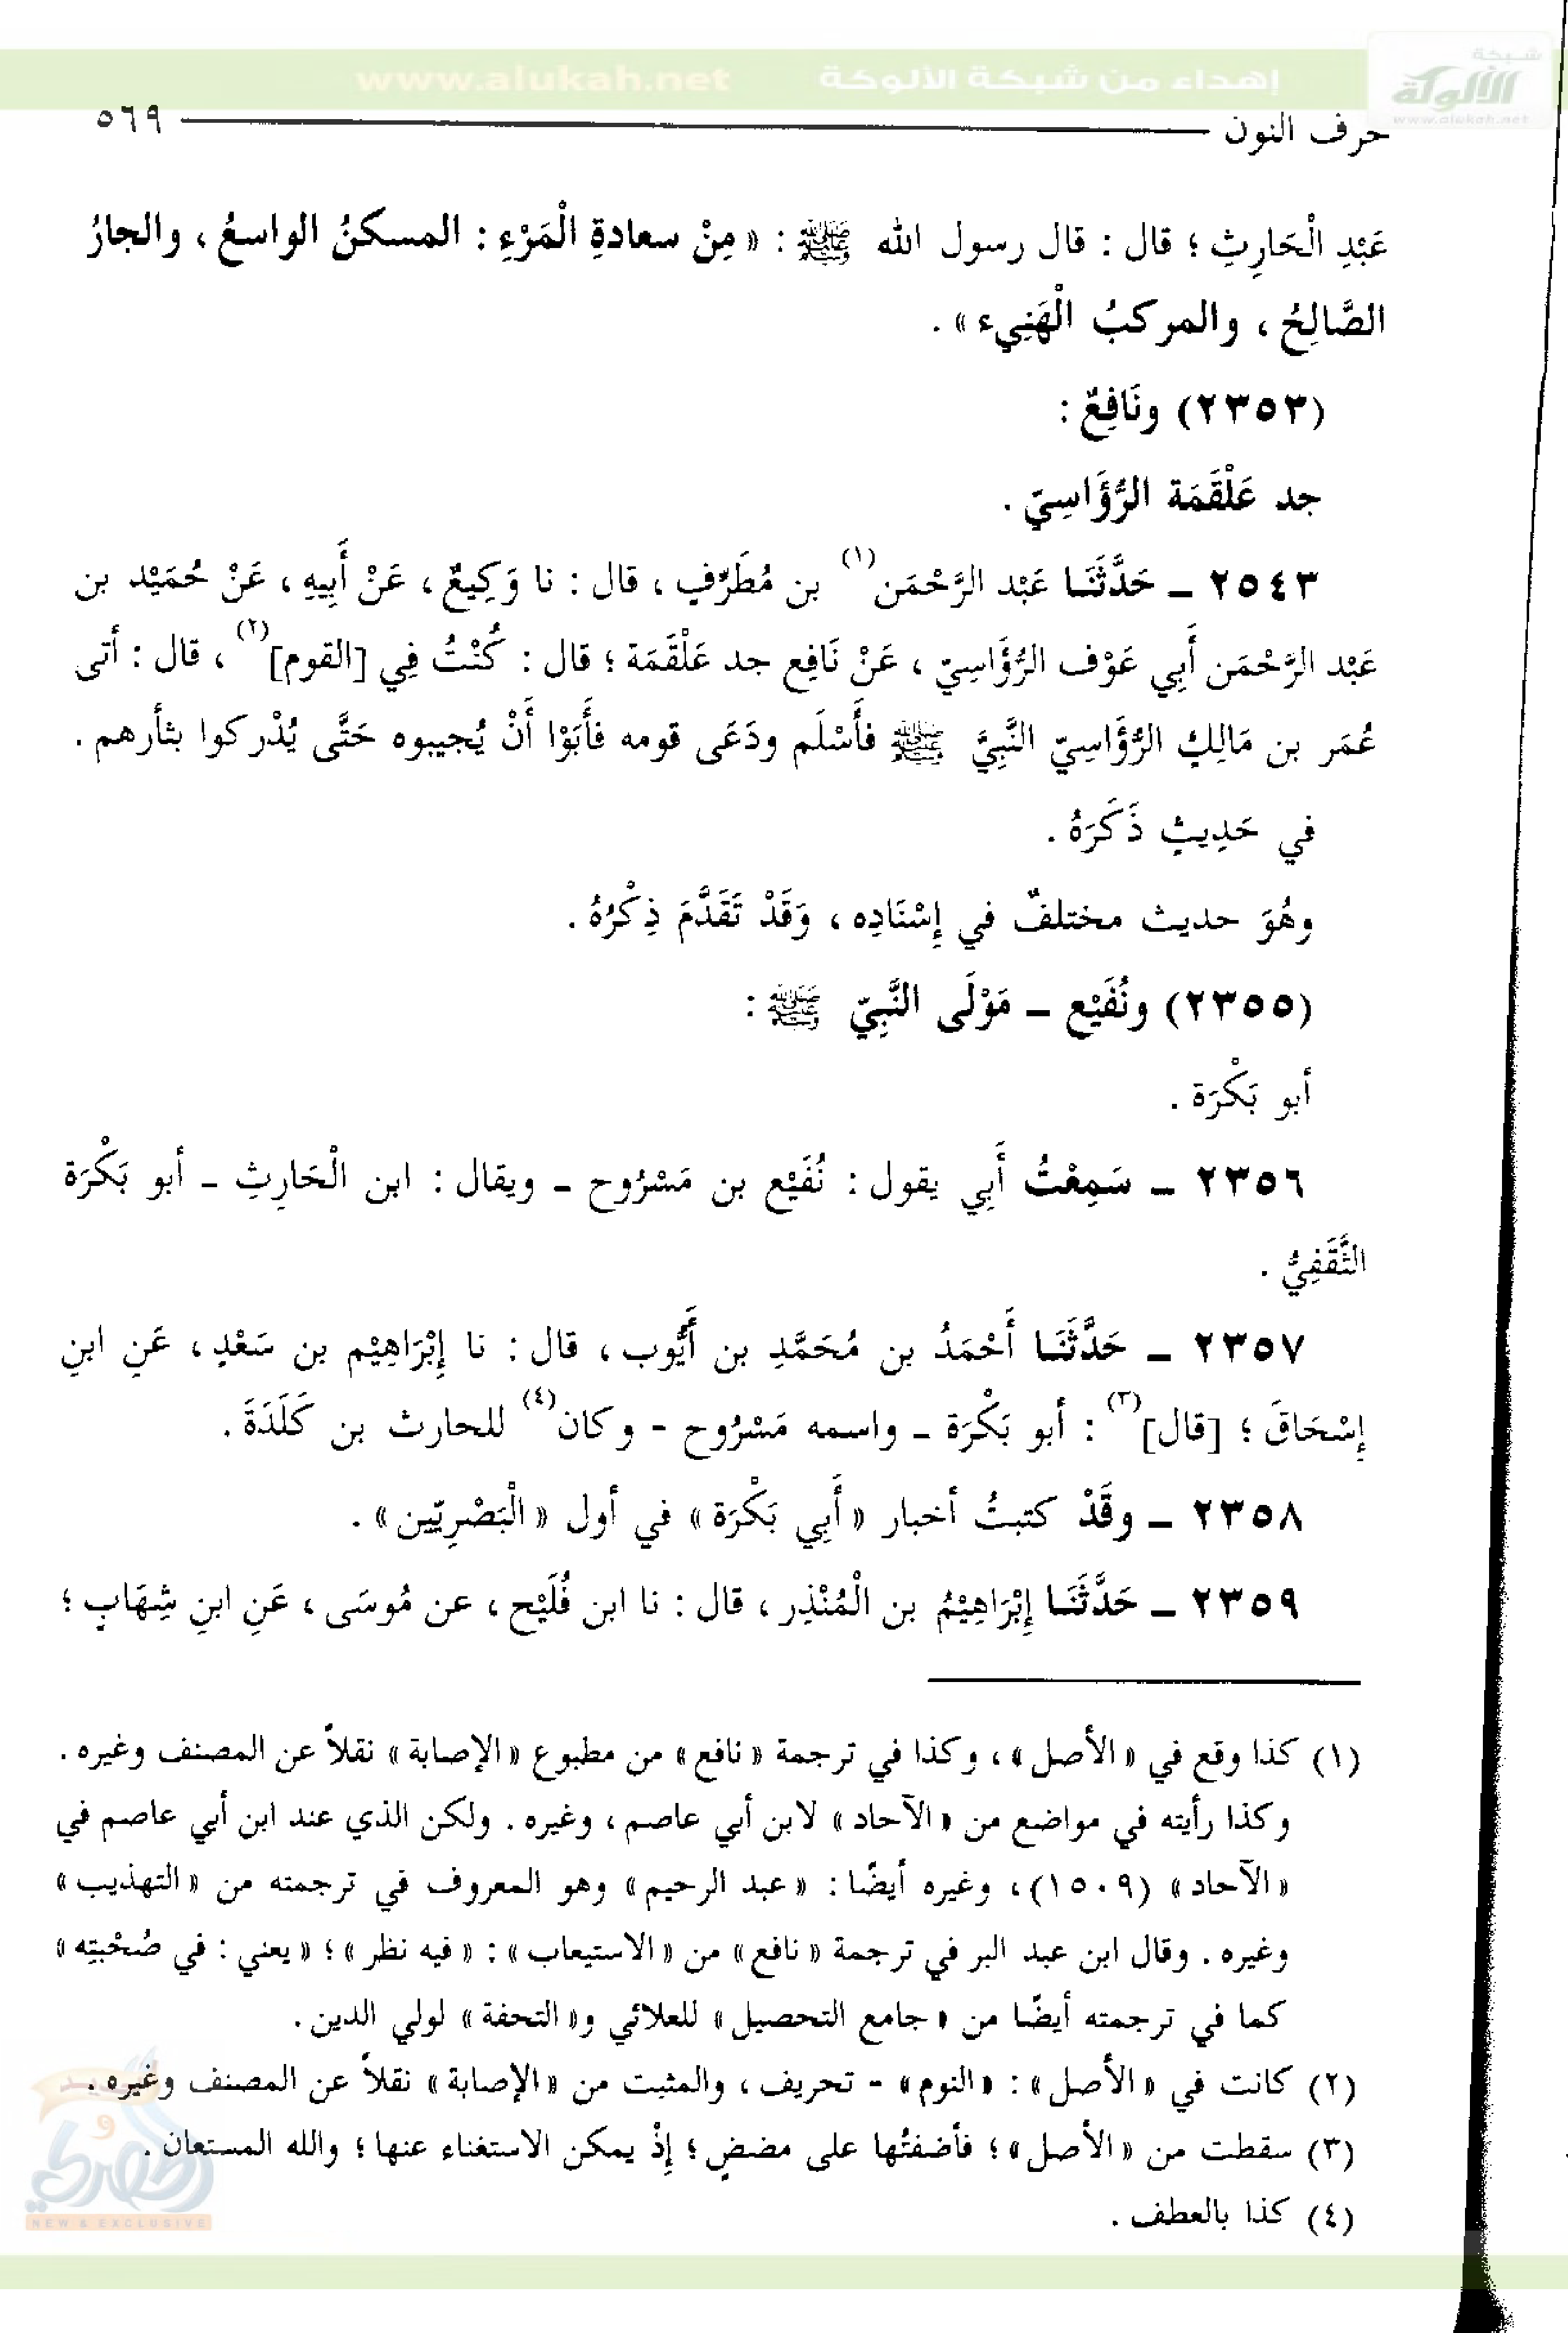 www.alukah.net إهداء من شبكة الألوكة
شبكة
الألوكة
www.alukah.net
حرف النون ٥٦٩
عَبْدِ الْحَارِثِ ؛ قال : قال رسول الله ﷺ : « مِنْ سعادةِ الْمَرْءِ : المسكنُ الواسعُ ، والجارُ
الصَّالِحُ ، والمركبُ الْهَنِيء » .
(٢٣٥٣) ونَافِعٌ :
جد عَلْقَمَة الرُّؤَاسِيّ .
٢٥٤٣ ـ حَدَّثَنَـا عَبْد الرَّحْمَن(١) بن مُطَرِّفٍ ، قال : نا وَكِيعٌ ، عَنْ أَبِيهِ ، عَنْ حُمَيْد بن
عَبْد الرَّحْمَن أَبِي عَوْف الرُّؤَاسِيّ ، عَنْ نَافِع جد عَلْقَمَة ؛ قال : كُنْتُ فِي [القوم](٢) ، قال : أتى
عُمَر بن مَالِكٍ الرُّؤَاسِيّ النَّبِيَّ ﷺ فأَسْلَم ودَعَى قومه فأَبَوْا أَنْ يُجيبوه حَتَّى يُدْركوا بثأرهم .
في حَدِيثٍ ذَكَرَهُ .
وهُوَ حديث مختلفٌ في إِسْنَادِه ، وَقَدْ تَقَدَّمَ ذِكْرُهُ .
(٢٣٥٥) ونُفَيْع ـ مَوْلَى النَّبِيّ ﷺ :
أبو بَكْرَة .
٢٣٥٦ ـ سَمِعْتُ أَبِي يقول : نُفَيْع بن مَسْرُوح ـ ويقال : ابن الْحَارِثِ ـ أبو بَكْرَة
الثَّقَفِيُّ .
٢٣٥٧ ـ حَدَّثَنَـا أَحْمَدُ بن مُحَمَّدِ بن أَيُّوب ، قال : نا إِبْرَاهِيْم بن سَعْدٍ ، عَنِ ابنِ
إِسْحَاقَ ؛ [قال](٣) : أبو بَكْرَة ـ واسمه مَسْرُوح - وكان(٤) للحارث بن كَلَدَةَ .
٢٣٥٨ ـ وقَدْ كتبتُ أخبار « أَبِي بَكْرَة » في أول « الْبَصْرِيّين » .
٢٣٥٩ ـ حَدَّثَنَـا إِبْرَاهِيْمُ بن الْمُنْذِر ، قال : نا ابن فُلَيْح ، عن مُوسَى ، عَنِ ابنِ شِهَابٍ ؛
(١) كذا وقع في « الأصل » ، وكذا في ترجمة « نافع » من مطبوع « الإصابة » نقلاً عن المصنف وغيره .
وكذا رأيته في مواضع من « الآحاد » لابن أبي عاصم ، وغيره . ولكن الذي عند ابن أبي عاصم في
« الآحاد » (١٥٠٩) ، وغيره أيضًا : « عبد الرحيم » وهو المعروف في ترجمته من « التهذيب »
وغيره . وقال ابن عبد البر في ترجمة « نافع » من « الاستيعاب » : « فيه نظر » ؛ « يعني : في صُحْبتِه »
كما في ترجمته أيضًا من « جامع التحصيل » للعلائي و« التحفة » لولي الدين .
(٢) كانت في « الأصل » : « النوم » - تحريف ، والمثبت من « الإصابة » نقلاً عن المصنف وغيره .
(٣) سقطت من « الأصل » ؛ فأضفتُها على مضضٍ ؛ إِذْ يمكن الاستغناء عنها ؛ والله المستعان .
(٤) كذا بالعطف .
NEW & EXCLUSIVE